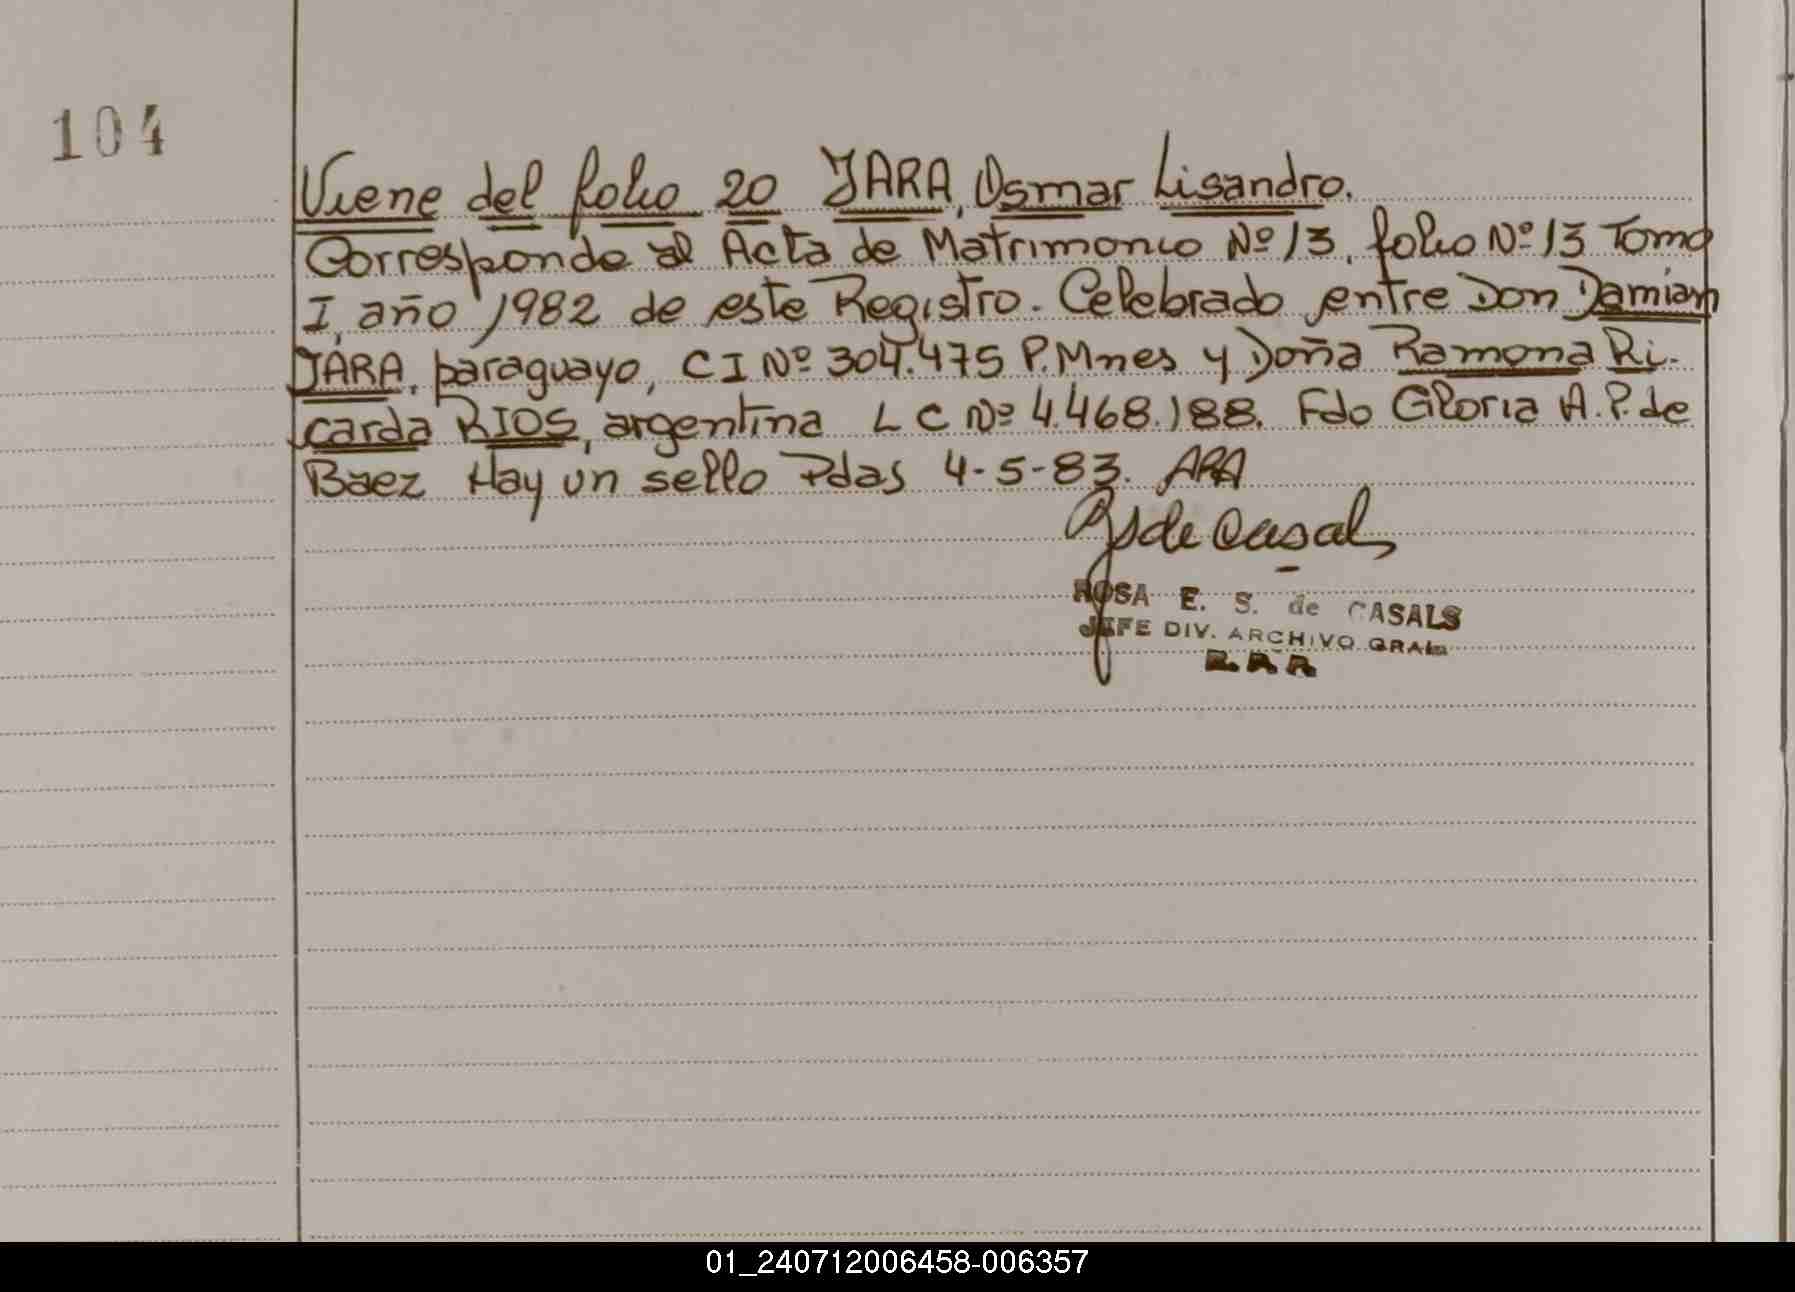 104
Viene del folio 20 JARA, Osmar Lisandro.
Corresponde al Acta de Matrimonio Nº 13, folio Nº 13 Tomo
I, año 1982 de este Registro. Celebrado entre Don Damian
JARA, paraguayo, C I Nº 304.475 P. Mnes y Doña Ramona Ri-
carda RIOS, argentina L C Nº 4.468.188. Fdo Gloria A. P. de
Baez Hay un sello Pdas 4-5-83. ARA
de Casals
ROSA E. S. de CASALS
JEFE DIV. ARCHIVO GRAL.
01_240712006458-006357